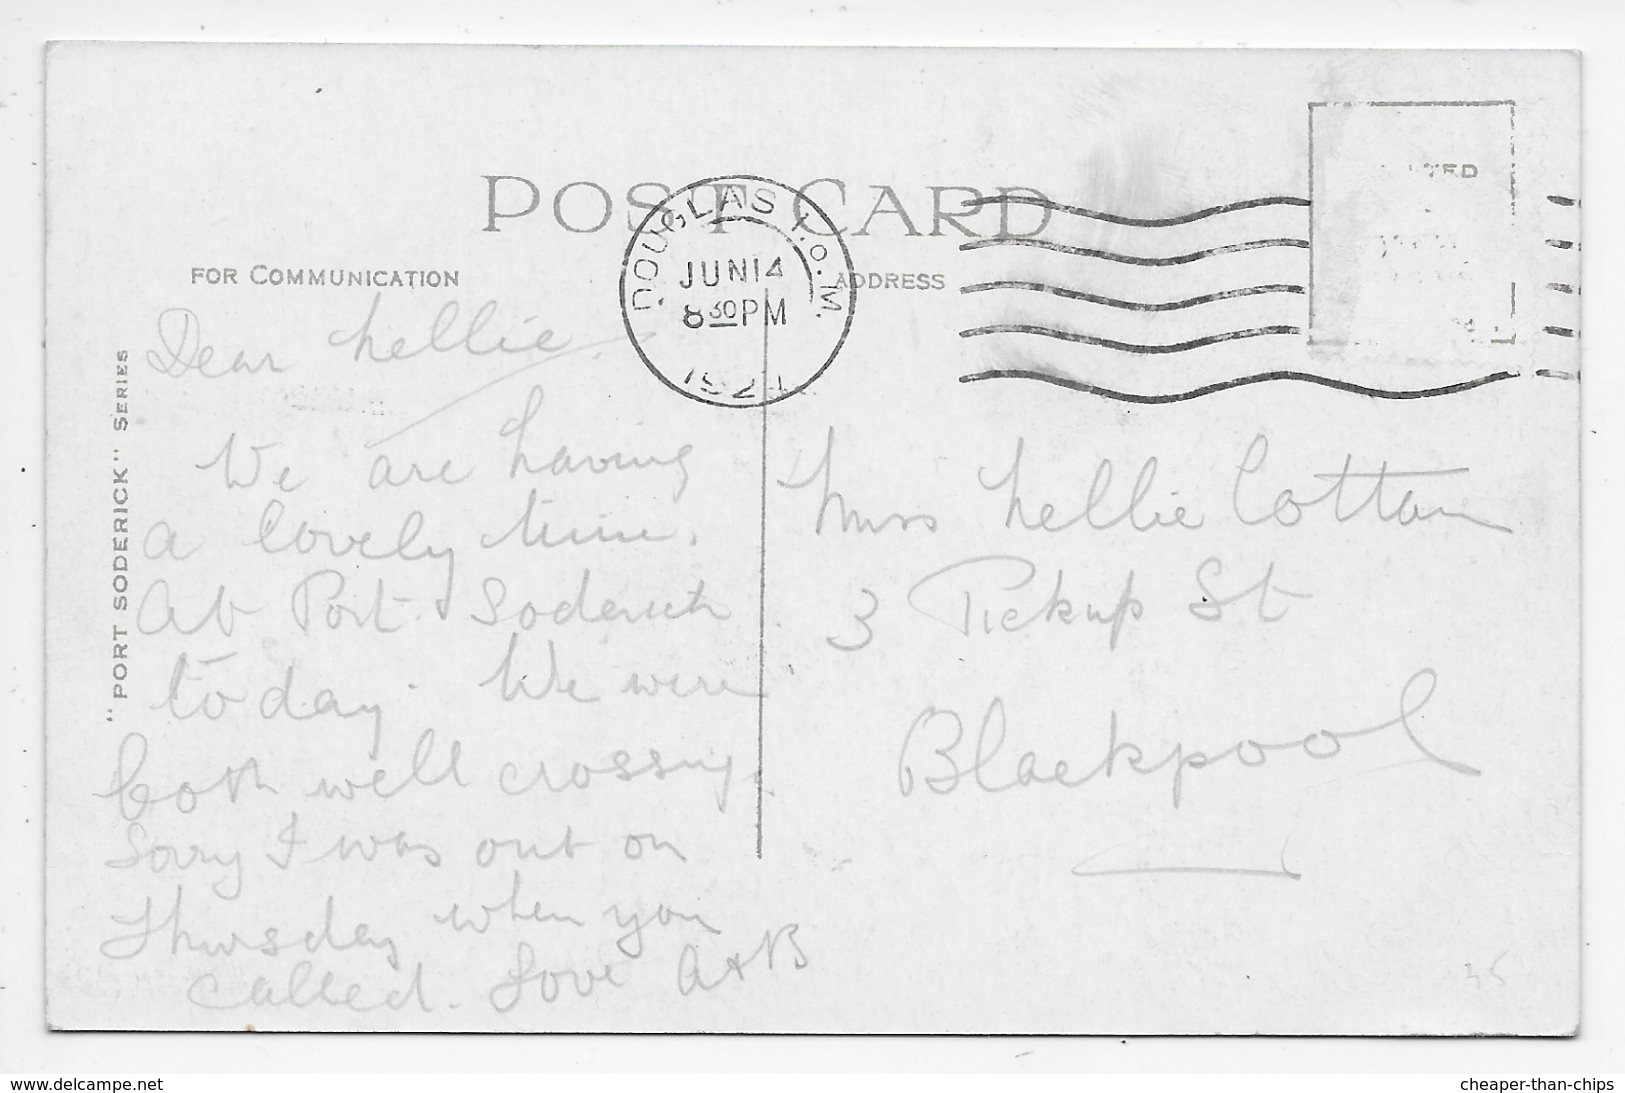 POST CARD
FOR COMMUNICATION
ADDRESS
DOUGLAS I.O.M.
JUN 14
8 30 PM
"PORT SODERICK" SERIES
Dear Nellie.
We are having
a lovely time.
At Port Soderick
today. We were
both well crossing.
Sorry I was out on
Thursday when you
called. Love A + B
Miss Nellie Cottam
3 Pickup St
Blackpool
35
www.delcampe.net
cheaper-than-chips